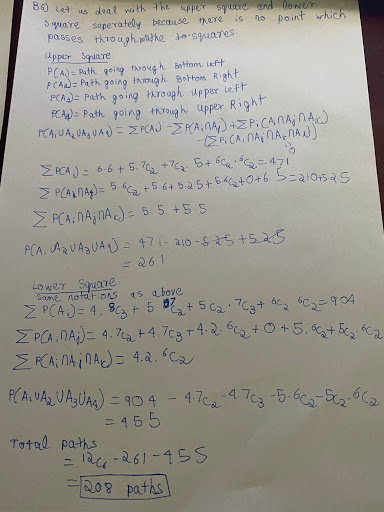 B6) Let us deal with the upper square and lower
square seperately because there is no point which
passes through the to squares
Upper Square
P(A₁) = Path going through Bottom left
P(A₂) = Path going through Bottom Right
P(A₃) = Path going through Upper left
P(A₄) = Path going through Upper Right
P(A₁∪A₂∪A₃∪A₄) = ΣP(Aᵢ) - ΣP(Aᵢ∩Aⱼ) + ΣPᵢ(Aᵢ∩Aⱼ∩Aₖ)
- (ΣPᵢ(Aᵢ∩Aⱼ∩Aₖ∩Aₗ))
0
ΣP(Aᵢ) = 6.6 + 5.⁷C₂ + ⁷C₂.5 + ⁶C₂.⁶C₂ = 471
ΣP(Aᵢ∩Aⱼ) = 5.⁶C₂ + 5.6 + 5.25 + 5.⁶C₂ + 0 + 6.5 = 210 + 525
ΣP(Aᵢ∩Aⱼ∩Aₖ) = 5.5 + 5.5
P(A₁∪A₂∪A₃∪A₄) = 471 - 210 - 525 + 525
= 261
Lower Square
Same notations as above
ΣP(Aᵢ) = 4.⁸C₃ + 5.⁷C₂ + 5C₂.⁷C₃ + ⁶C₂.⁶C₂ = 904
ΣP(Aᵢ∩Aⱼ) = 4.⁷C₂ + 4.⁷C₃ + 4.2.⁶C₂ + 0 + 5.⁶C₂ + 5C₂.⁶C₂
ΣP(Aᵢ∩Aⱼ∩Aₖ) = 4.2.⁶C₂
P(A₁∪A₂∪A₃∪A₄) = 904 - 4.⁷C₂ - 4.⁷C₃ - 5.⁶C₂ - 5C₂.⁶C₂
= 455
Total paths
= ¹²C₆ - 261 - 455
= 208 paths